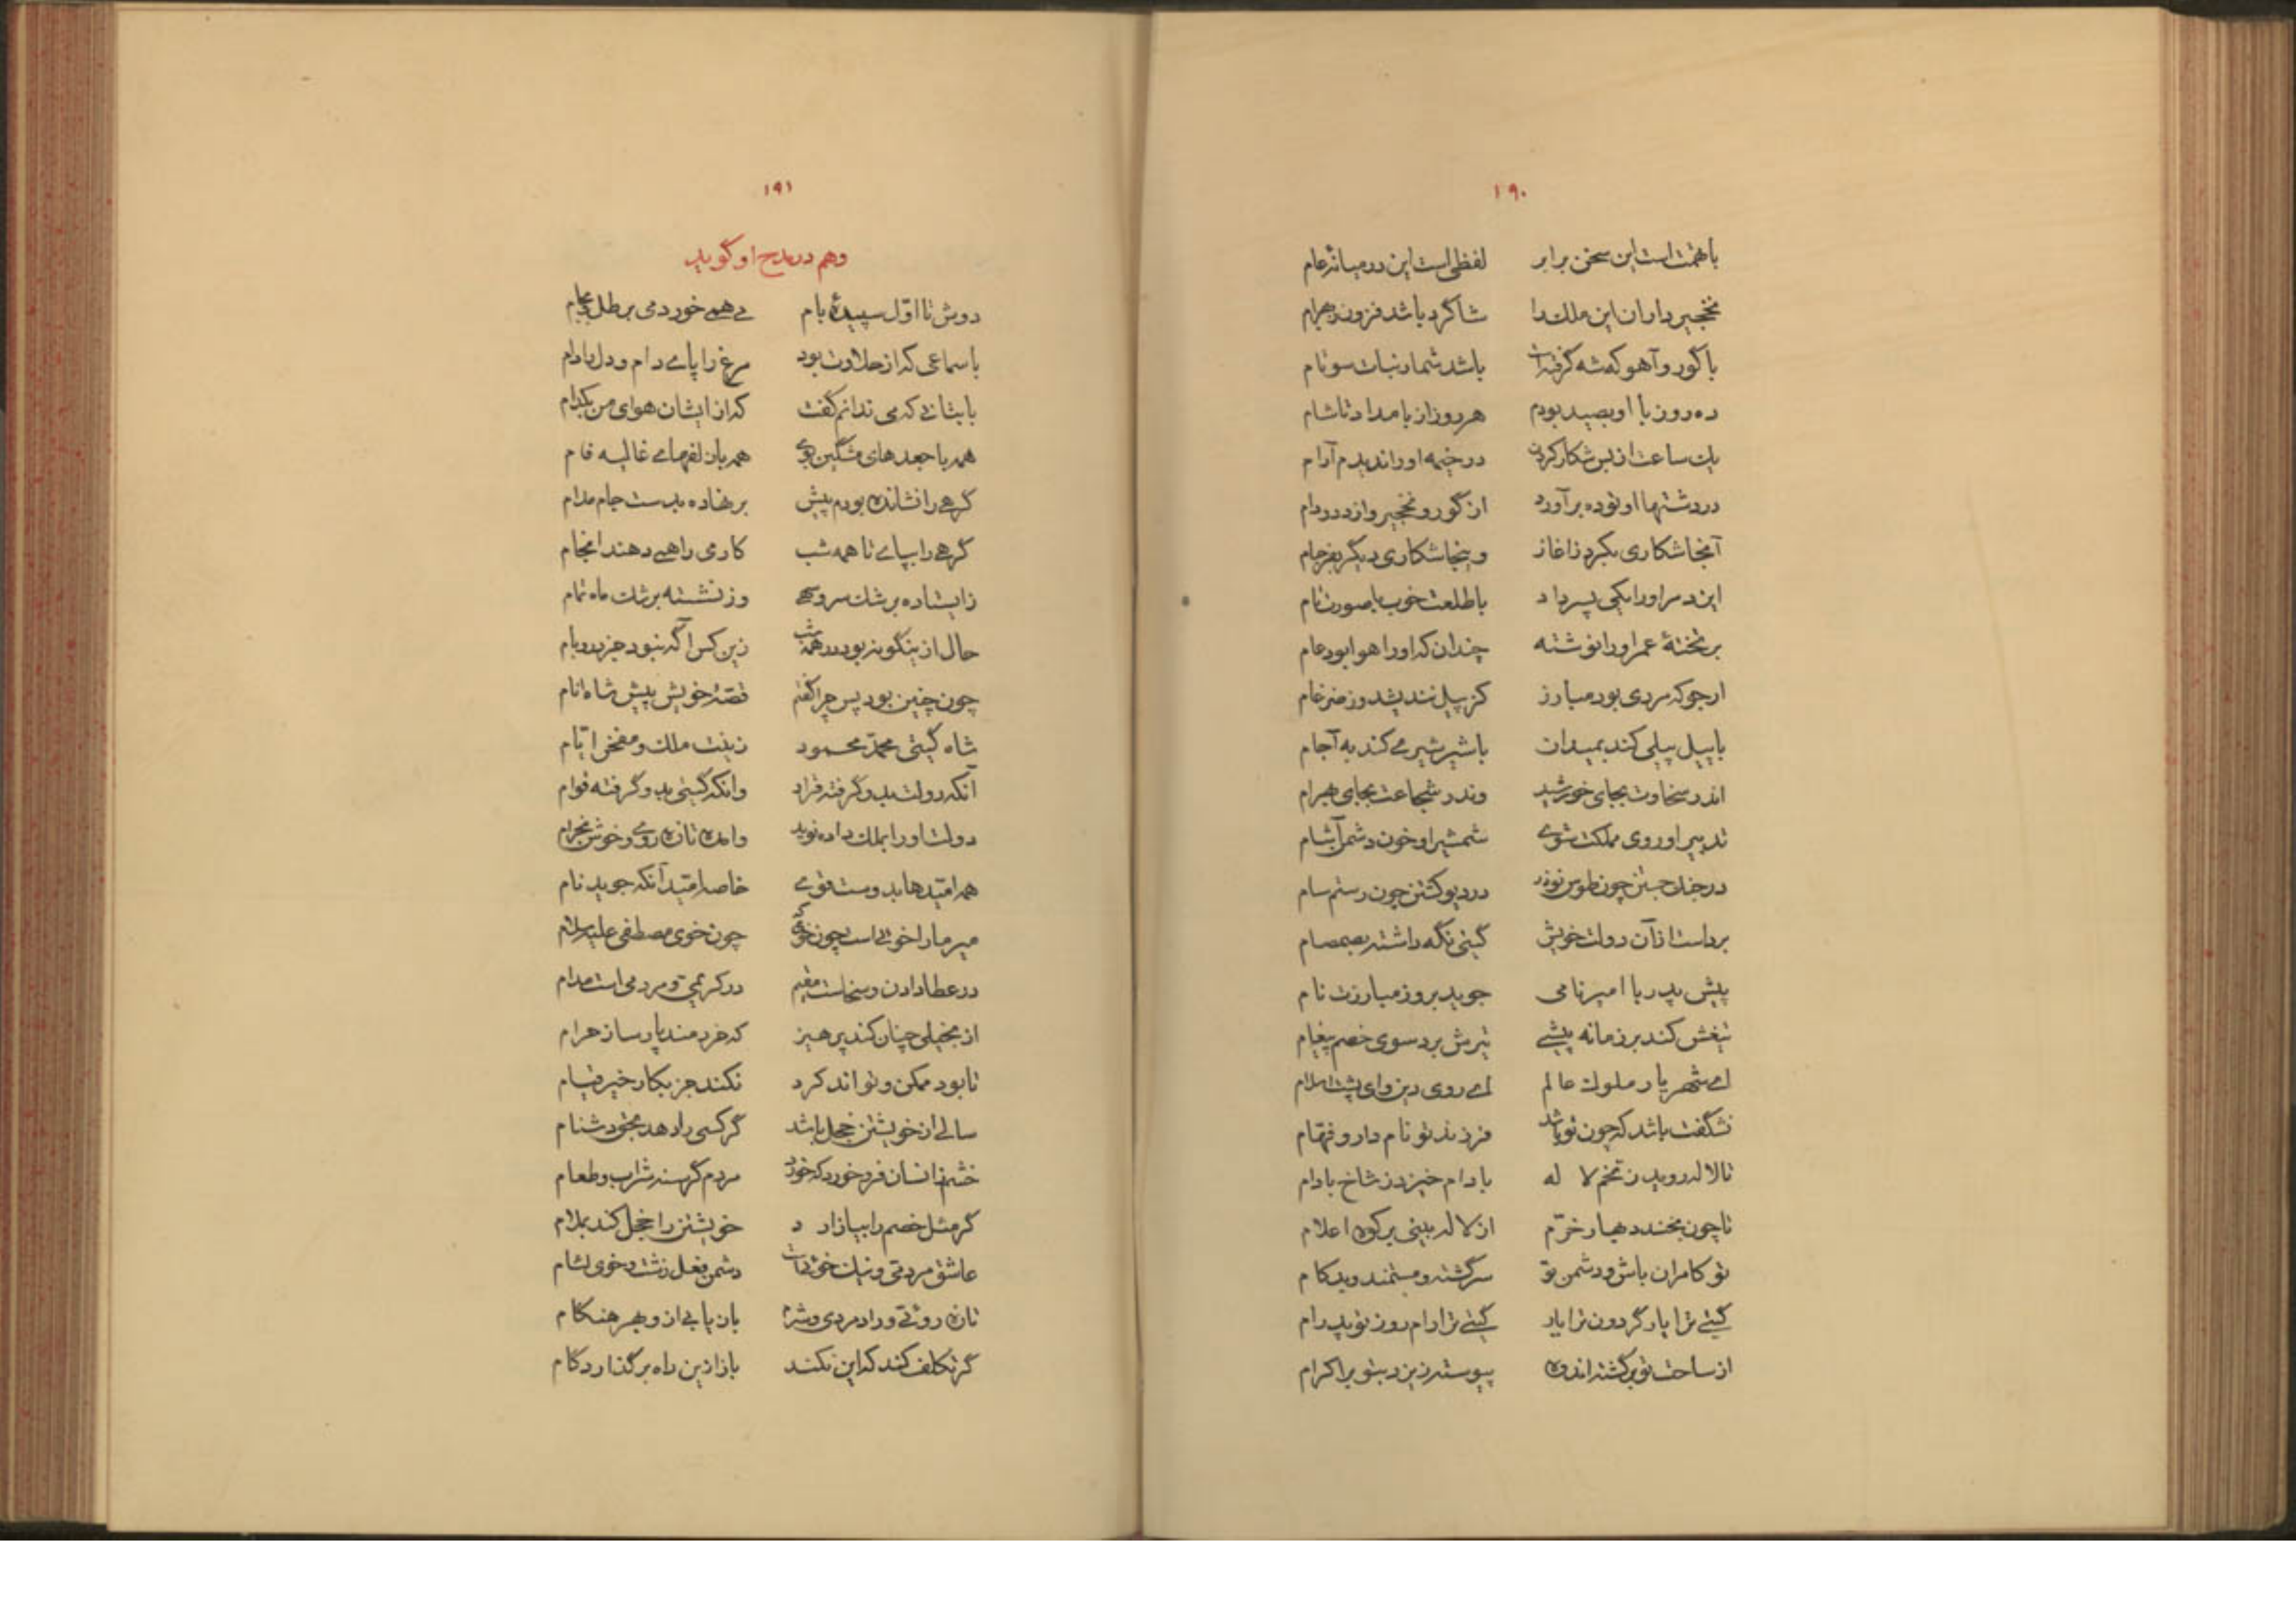 ۱۹۰
با همّت است این سخن برابر لفظی است این در میانهٔ عام
نخجیر داران این ملک را شاگرد باشد فزون ز بهرام
با گور و آهو که شه گرفته است باشد شمار نبات سوتام
ده روز با او بصید بودم هر روز از بامداد تا شام
یک ساعت از بس شکار کردن در خیمه او را ندیدم آرام
در دشتها او توده برآورد از گور و نخجیر و از دد و دام
آنجا شکاری بکرد ز آغاز و ینجا شکاری دیگر بفرجام
ایزد مر او را یکی پسر داد با طلعت خوب با صورت تام
بر تختهٔ عمر او را نوشته چندان که او را هوا بود عام
ارجو که مردی بود مبارز کز پیل نندیشد و ز ضرغام
با پیل پیلی کند بمیدان با شیر شیری کند به آجام
اندر سخاوت بجای خورشید وندر شجاعت بجای بهرام
تدبیر او روی مملکت شوی شمشیر او خون دشمن آشام
در جنگ جستن چون طوس نوذر در دیو کشتن چون رستم سام
برداست از آن دولت خویش گیتی نگه داشته بصمصام
پیش پدر با امیر نامی جوید بروز مبارزت نام
تیغش کند بر زمانه پیشی تیرش برد سوی خصم پیغام
ای شهریار ملوک عالم ای روی دین و ای پشت اسلام
نشگفت باشد که چون تو باشد فرزند تو نام دار و فهّام
تا لاله روید ز تخم لاله بادام خیزد ز شاخ بادام
تا چون بخندد بهار خرّم از لاله بینی بر کوه اعلام
تو کامران باش و دشمن تو سرگشته و مستمند و بدکام
گیتی ترا یار گردون ترا یار گیتی ترا رام روز تو پدرام
از ساحت تو برگشته اندوه پیوسته زیزد بتو بر اکرام
۱۹۱
وهم در مدح او گوید
دوش تا اوّل سپیدهٔ بام می همی خوردمی بر طل بجام
با سماعی که از حلاوت بود مرغ را پای دام و دل را دام
با بتانی که می ندانم گفت که از ایشان هوای من بکدام
همه با جعدهای مشگین بوی همه با زلفهای غالیه فام
گرهی را نشانده بودم پیش برنهاده بدست جام مدام
گرهی را بپای تا همه شب کار می را همی دهند انجام
ز ایستاده برشک سرو سهی وز نشسته برشک ماه تمام
حال ازینگونه بود در همه شب زین کس آگه نبود جز در و بام
چون چنین بود پس چرا گفتم قصّهٔ خویش پیش شاه انام
شاه گیتی محمّد محمود زینت ملک و مفخر ایّام
آنکه دولت بدو گرفته قرار وانکه گیتی بدو گرفته قوام
دولت او را بملک داده نوید وامده تازه روی و خوش بخرام
همه امّیدها بدوست قوی خاصه امّید آنکه جوید نام
میر ما را خوئی است چون خوی که چون خوی مصطفی علیه سلام
در عطا دادن و سخاست مقیم در کریمی و مردمی است مدام
از بخیلی چنان کند پرهیز که خردمند پارسا ز حرام
تا بود ممکن و تواند کرد نکند جز بکار خیر قیام
سالی از خویشتن خجل باشد گر کسی را دهد بخود دشنام
خشم ز انسان فرو خورد که خورد مردم گرسنه شراب و طعام
گر مثل خصم را بیازارد خویشتن را خجل کند بملام
عاشق مردمی و نیک خوئی است دشمن فعل زشت و خوی لئام
تازه روئی و رادمردی و شرم باز یابی از و بهر هنگام
گر تکلف کند که این نکند باز ازین راه برگذارد گام